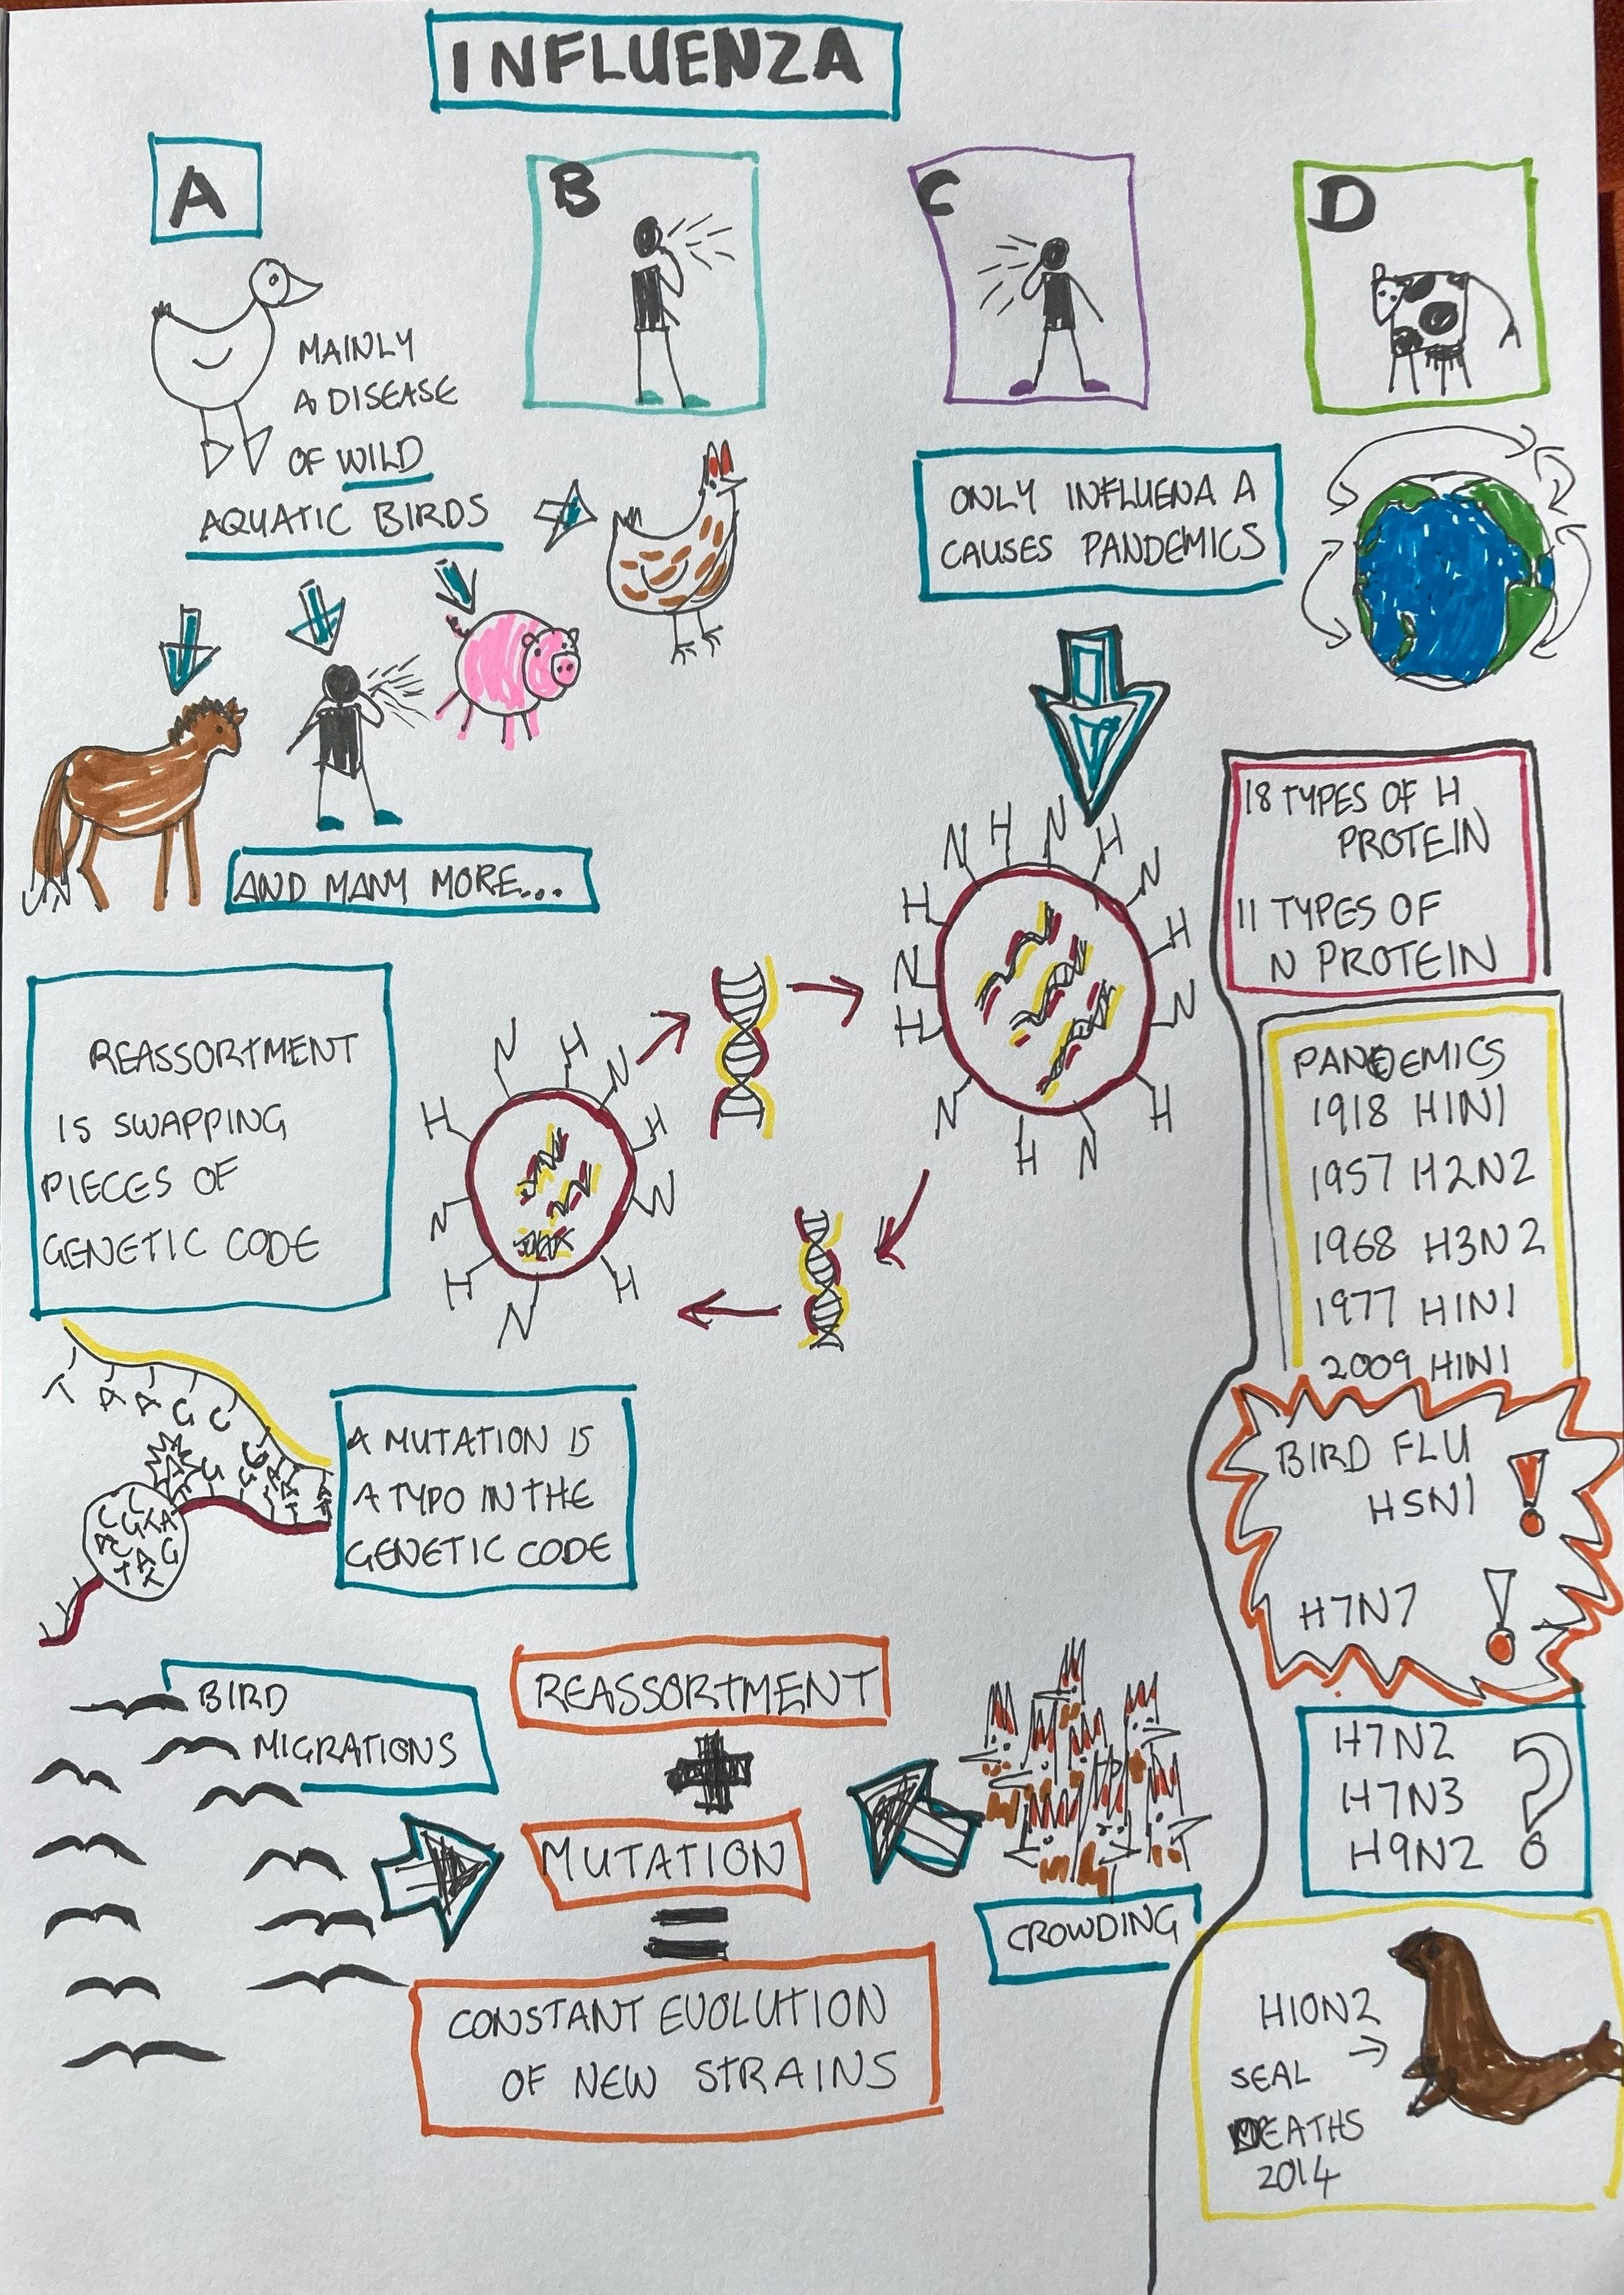 INFLUENZA
A
B
C
D
MAINLY
A DISEASE
OF WILD
AQUATIC BIRDS
ONLY INFLUENA A
CAUSES PANDEMICS
AND MANY MORE...
18 TYPES OF H
PROTEIN
11 TYPES OF
N PROTEIN
N H N H
N
H
H
N
N
H
H
N
H
N
REASSORTMENT
IS SWAPPING
PIECES OF
GENETIC CODE
N H N
H
H
N
N
H
H
N
PANDEMICS
1918 H1N1
1957 H2N2
1968 H3N2
1977 H1N1
2009 H1N1
T A A G C
A MUTATION IS
A TYPO IN THE
GENETIC CODE
BIRD FLU
H5N1 !
H7N7 !
BIRD
MIGRATIONS
REASSORTMENT
+
MUTATION
=
CONSTANT EVOLUTION
OF NEW STRAINS
CROWDING
H7N2
H7N3 ?
H9N2
H10N2
SEAL
DEATHS
2014